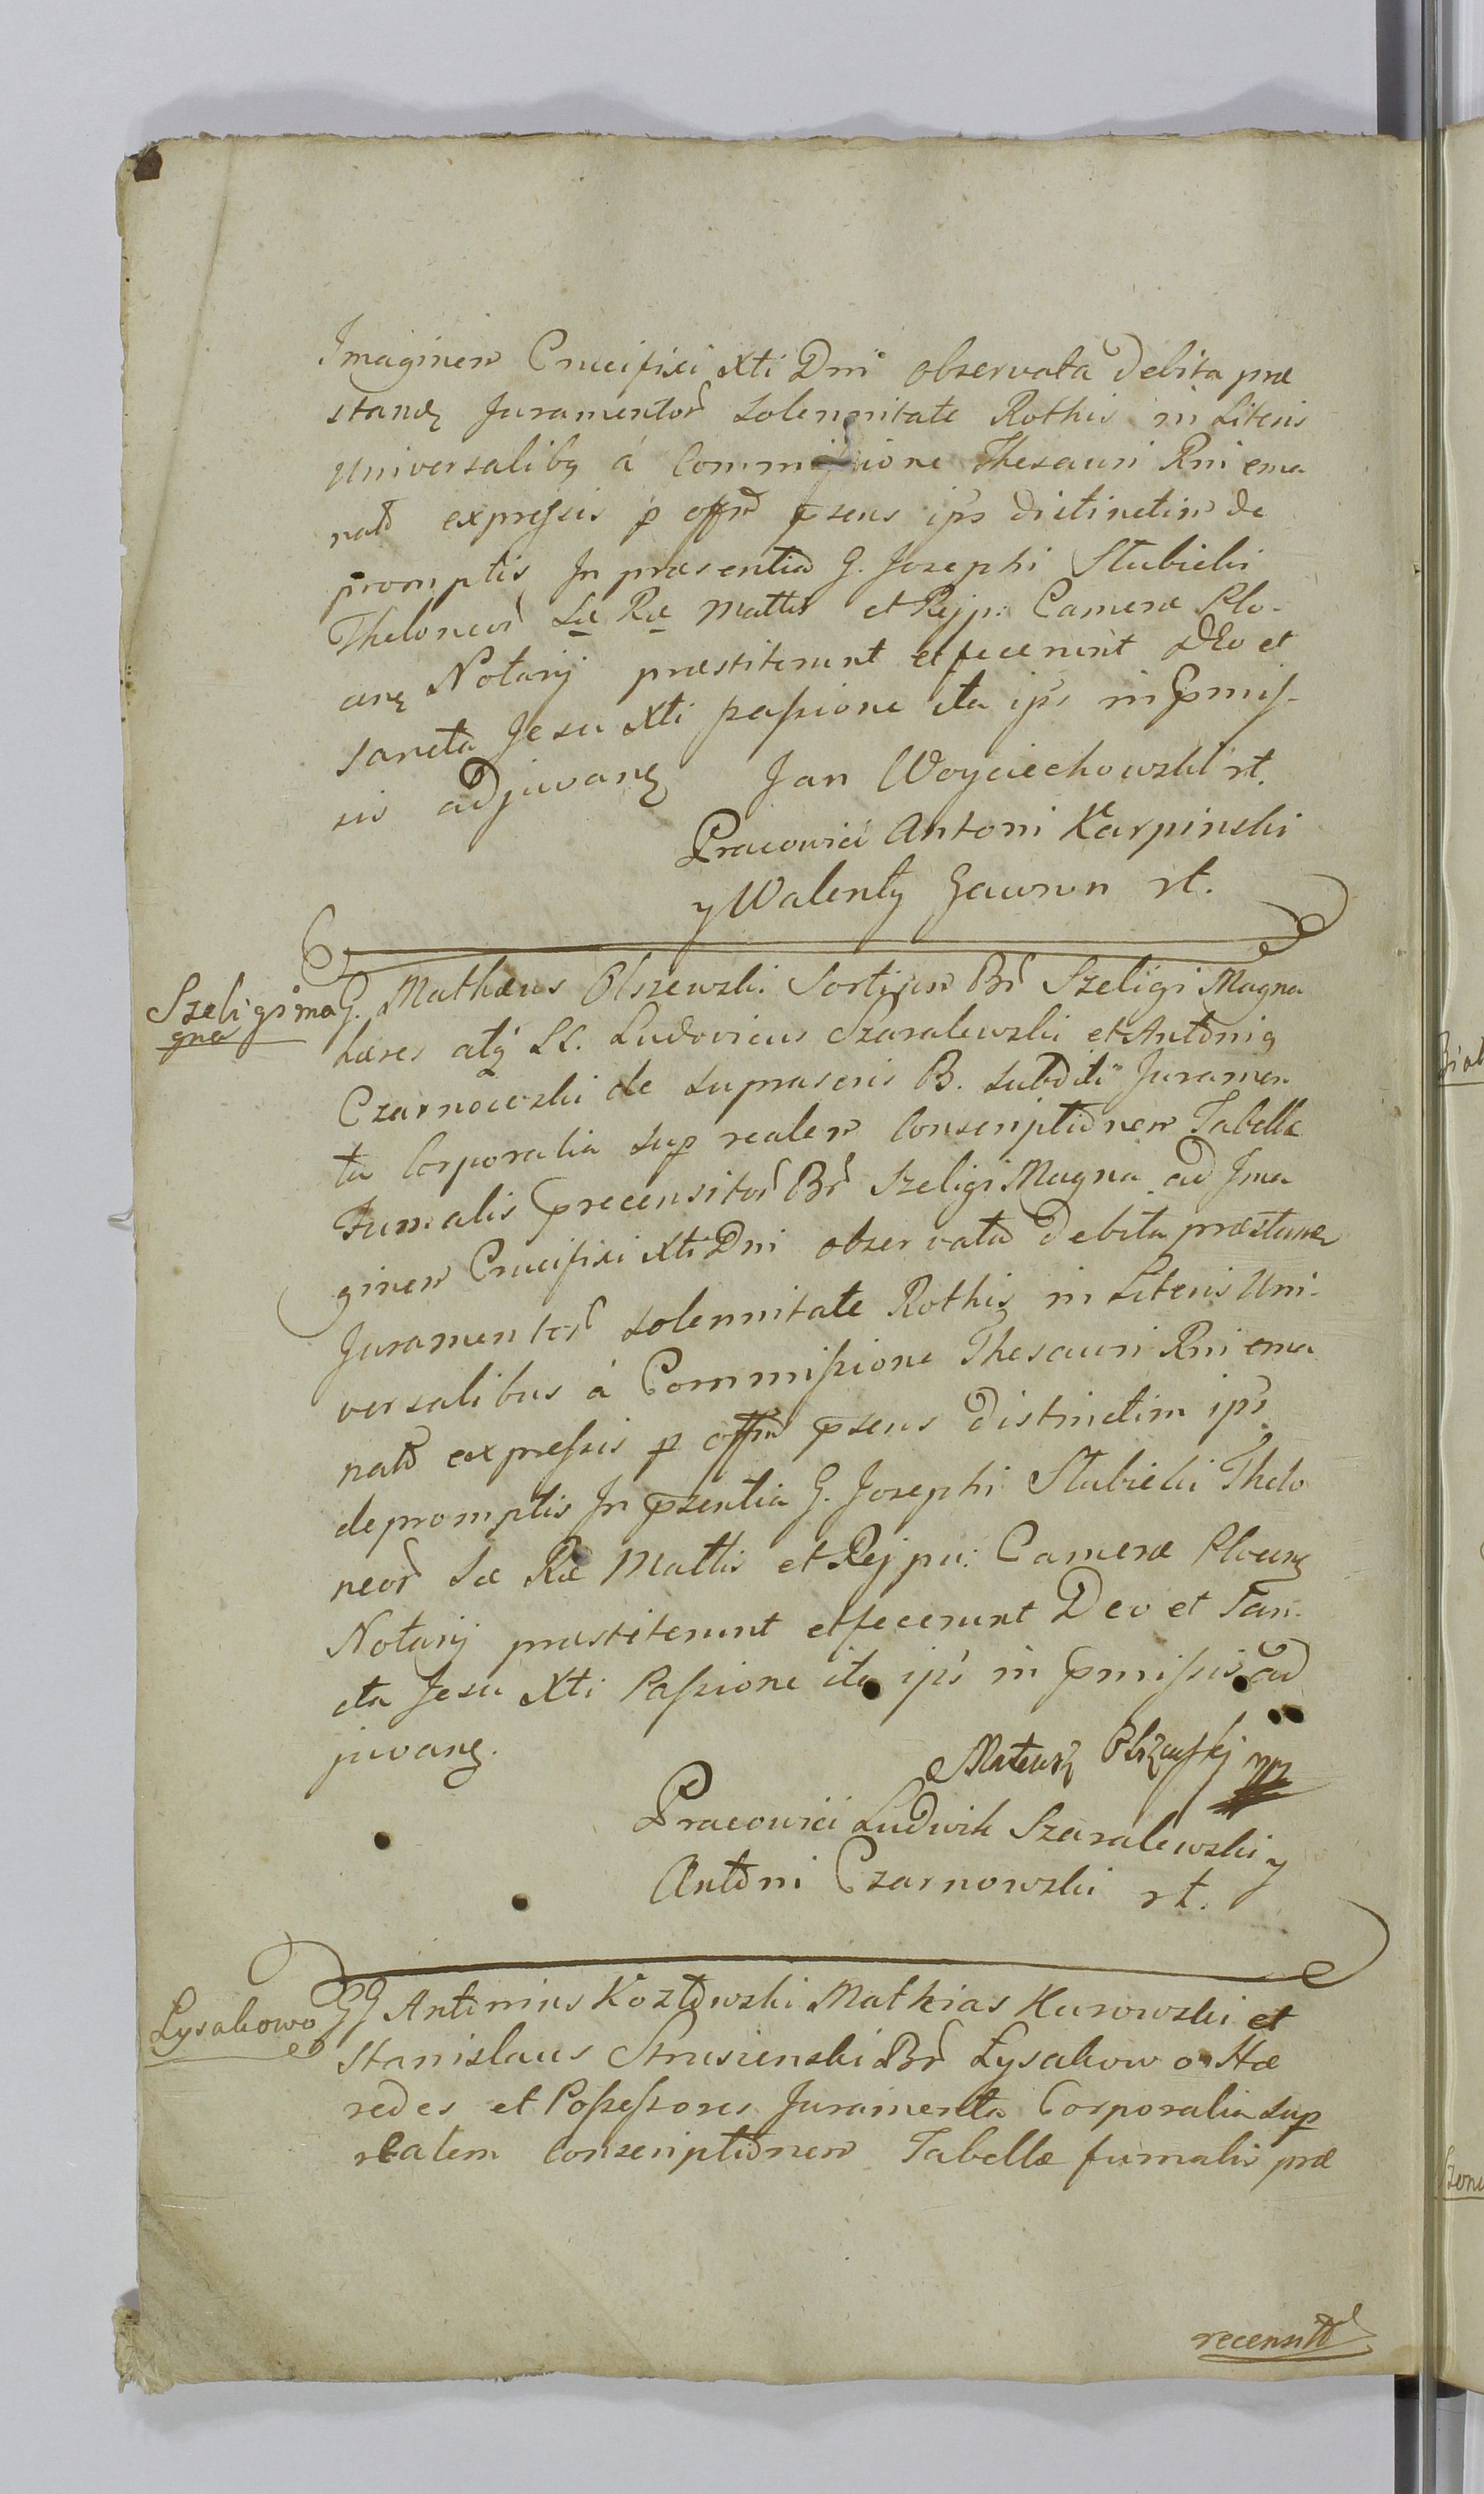 Imaginem Crucifixi Xti Dni observata debita præ
standę Juramentor solennitate Rothis in Literis
Universalibq á Commissione Thesauri Rni ema
nato expressis p offm psens ips distinctim de
promptis In præsentia G. Josephi Stubicki
Theloneor Sæ Ræ Mattis et Rejp: Cameræ Plo-
cen Notarij præstiterunt et fecerunt Deo et
sancta Jesu Xti passione ita ips in pmis-
sis adjuvanę
Jan Woyciechowski rt.
Pracowici Antoni Karpinski
y Walenty Gawron rt.
Szeligi ma
gna
G. Mathæus Olszewski Sortium Br Szeligi Magna
hæres atq SS. Ludovicus Szaralewski et Antonig
Czarnowski de suprascris B. subditi Juramen
ta Corporalia sup realem Conscriptionem Tabellæ
Fumalis precensitor Br Szeligi Magna ad Ima
ginem Crucifixi Xti Dni observata debita præstanę
Juramentor solennitate Rothis in Literis Uni-
versalibus á Commissione Thesauri Rni ema
nato expressis p offm psens distinctim ips
depromptis In pzentia G. Josephi Stubicki Thelo
neor Sæ Ræ Mattis et Rejpu: Cameræ Plocenę
Notarij præstiterunt et fecerunt Deo et San-
cta Jesu Xti Passione ita ips in pmissis ad
juvanę.
Mateusz Olszewskj mp
Pracowici Ludwik Szaralewski y
Antoni Czarnowski rt.
Łysakowo
GG Antonius Kozłowski Mathias Kurowski et
Stanislaus Strusienski Br Łysakowo Hæ
redes et Possessores Juramenta Corporalia sup
realem Conscriptionem Tabellæ fumalis præ
recensito